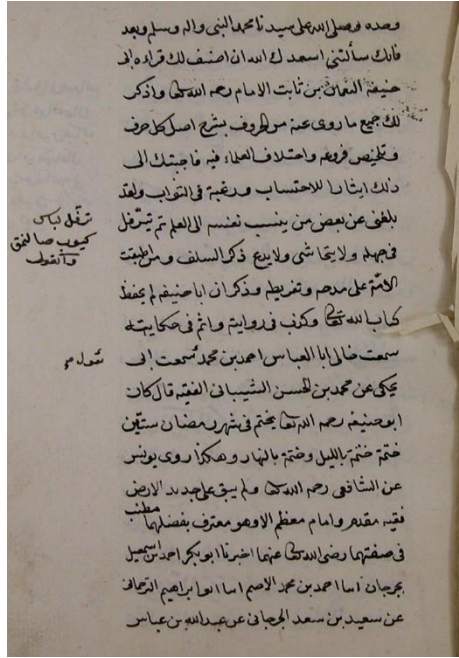 وحده وصلى الله على سيدنا محمد النبى واله وسلم وبعد
فانك سألتنى اسعدك الله ان اصنف لك قراءة ابى
حنيفة النعمان بن ثابت الامام رحمه الله تعالى واذكر
لك جميع ما روى عنه من الحروف بشرح اصل كل حرف
وتلخيص فروعه واختلاف العلماء فيه فاجبتك الى
ذلك ايثارا للاحتساب ورغبة فى الثواب ولقد
بلغنى عن بعض من ينسب نفسه الى العلم ثم يترفل
فى جهله ولا يتحاشى ولا يدع ذكر السلف ومن اطبقت
الامة على مدحه وتقريظه وذكر ان ابا حنيفة لم يحفظ
كتاب الله تعالى وكذب فى روايته واثم فى حكايته
سمعت خالى ابا العباس احمد بن محمد سمعت ابى
يحكى عن محمد بن الحسن الشيبانى الفقيه قال كان
ابو حنيفة رحمه الله تعالى يختم فى شهر رمضان ستين
ختمة ختمة بالليل وختمة بالنهار وهكذا روى يونس
عن الشافعى رحمه الله تعالى ولم يبق على جديد الارض
فقيه مقدم وامام معظم الا وهو معترف بفضلهما مطنب
فى صفتهما رضى الله تعالى عنهما اخبرنا ابو بكر احمد بن اسمعيل
بجرجان اسا احمد بن محمد الاصم اسا ابو ابراهيم الترجمانى
عن سعيد بن سعد الجرجانى عن عبد الله بن عباس
ترفل لباس
والقولى